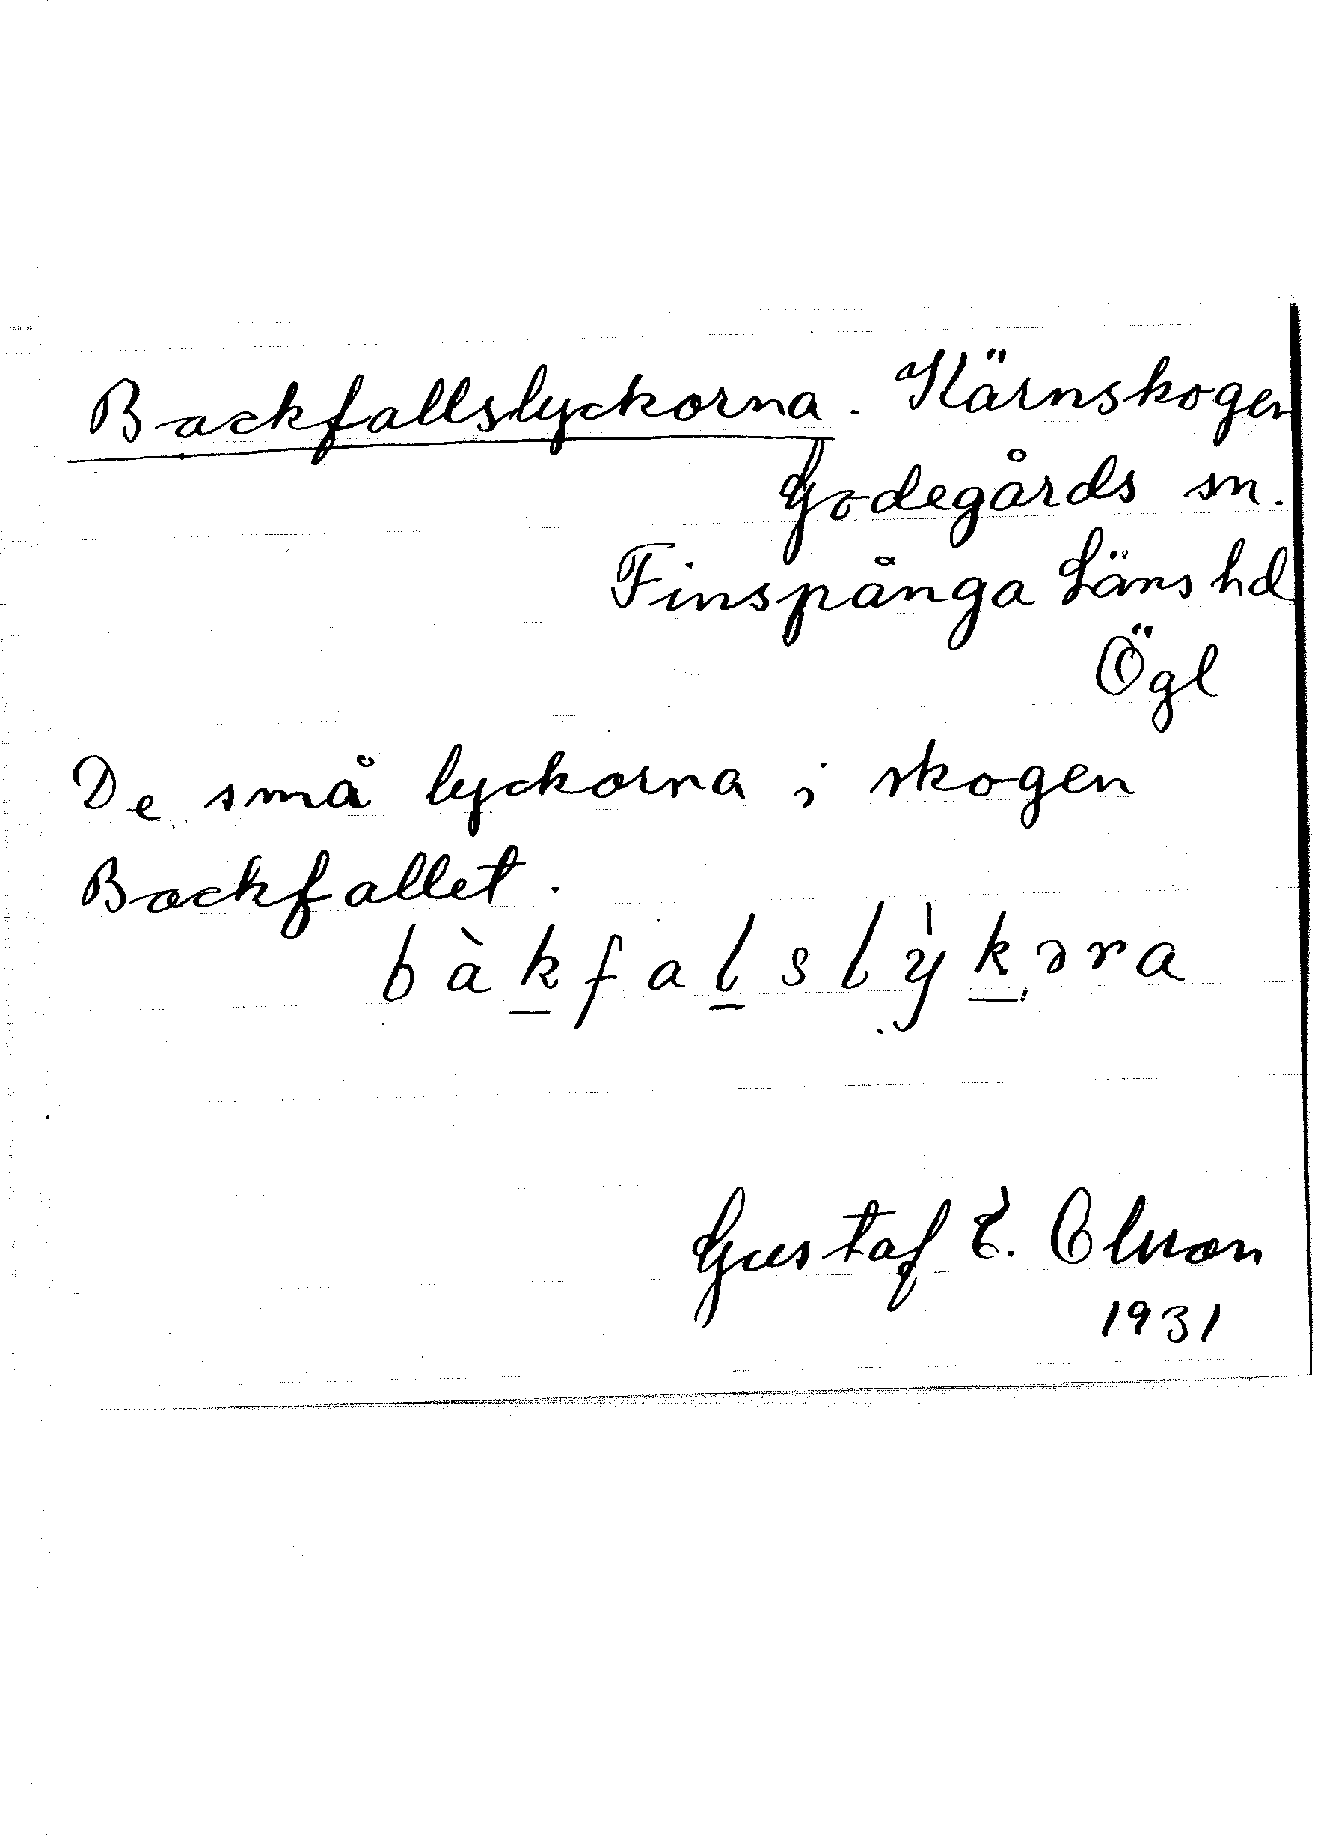 Backfallslyckorna. Kärnskogen
Godegårds sn.
Finspånga Läns hd
Ögl
De små lyckorna i skogen
Backfallet.
bàkfalslỳkəra
Gustaf E. Olsson
1931